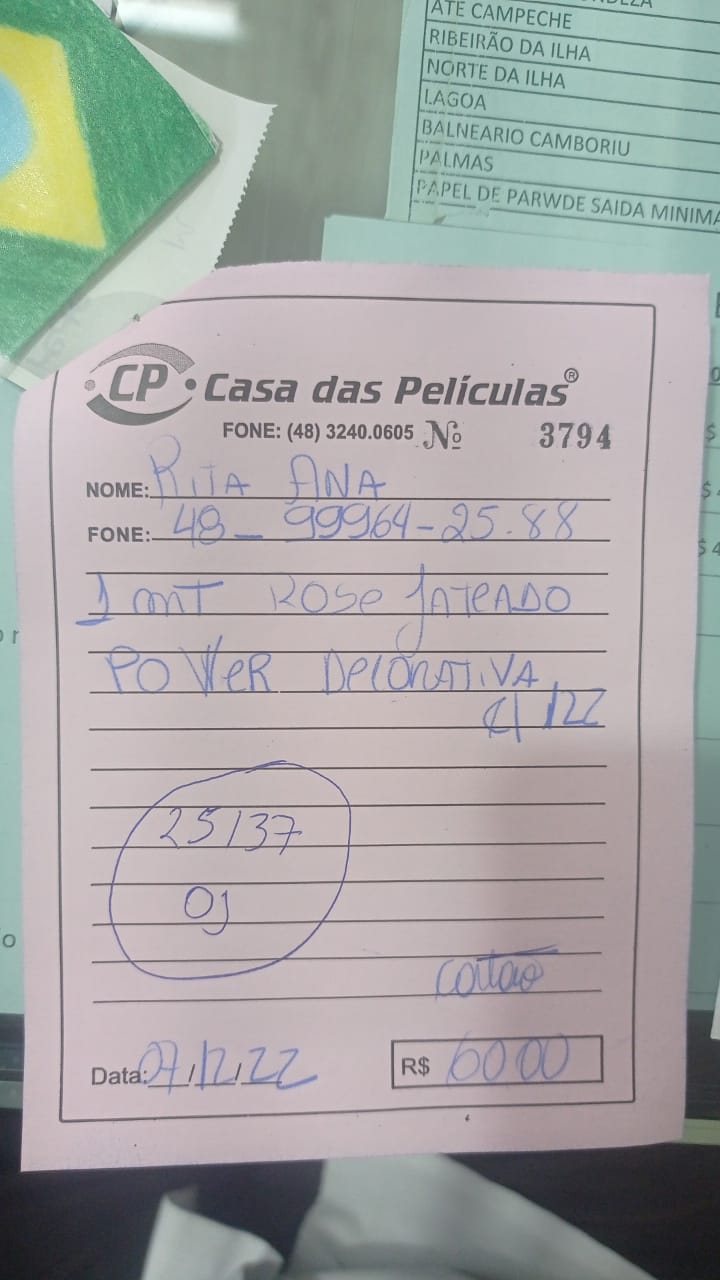 ATE CAMPECHE
RIBEIRÃO DA ILHA
NORTE DA ILHA
LAGOA
BALNEARIO CAMBORIU
PALMAS
PAPEL DE PARWDE SAIDA MINIMA
CP Casa das Películas®
FONE: (48) 3240.0605 Nº 3794
NOME: RITA ANA
FONE: 48_ 99964-25.88
1 mT ROSE JATEADO
POWER DECORATIVA
C/ 1,22
25137
01
cartão
Data: 07/12/22 R$ 6000